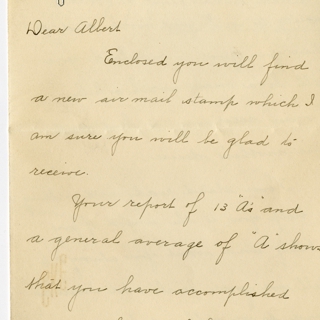 Dear Albert
Enclosed you will find
a new air mail stamp which I
am sure you will be glad to
receive.
Your report of 13 "A's" and
a general average of "A" shows
that you have accomplished